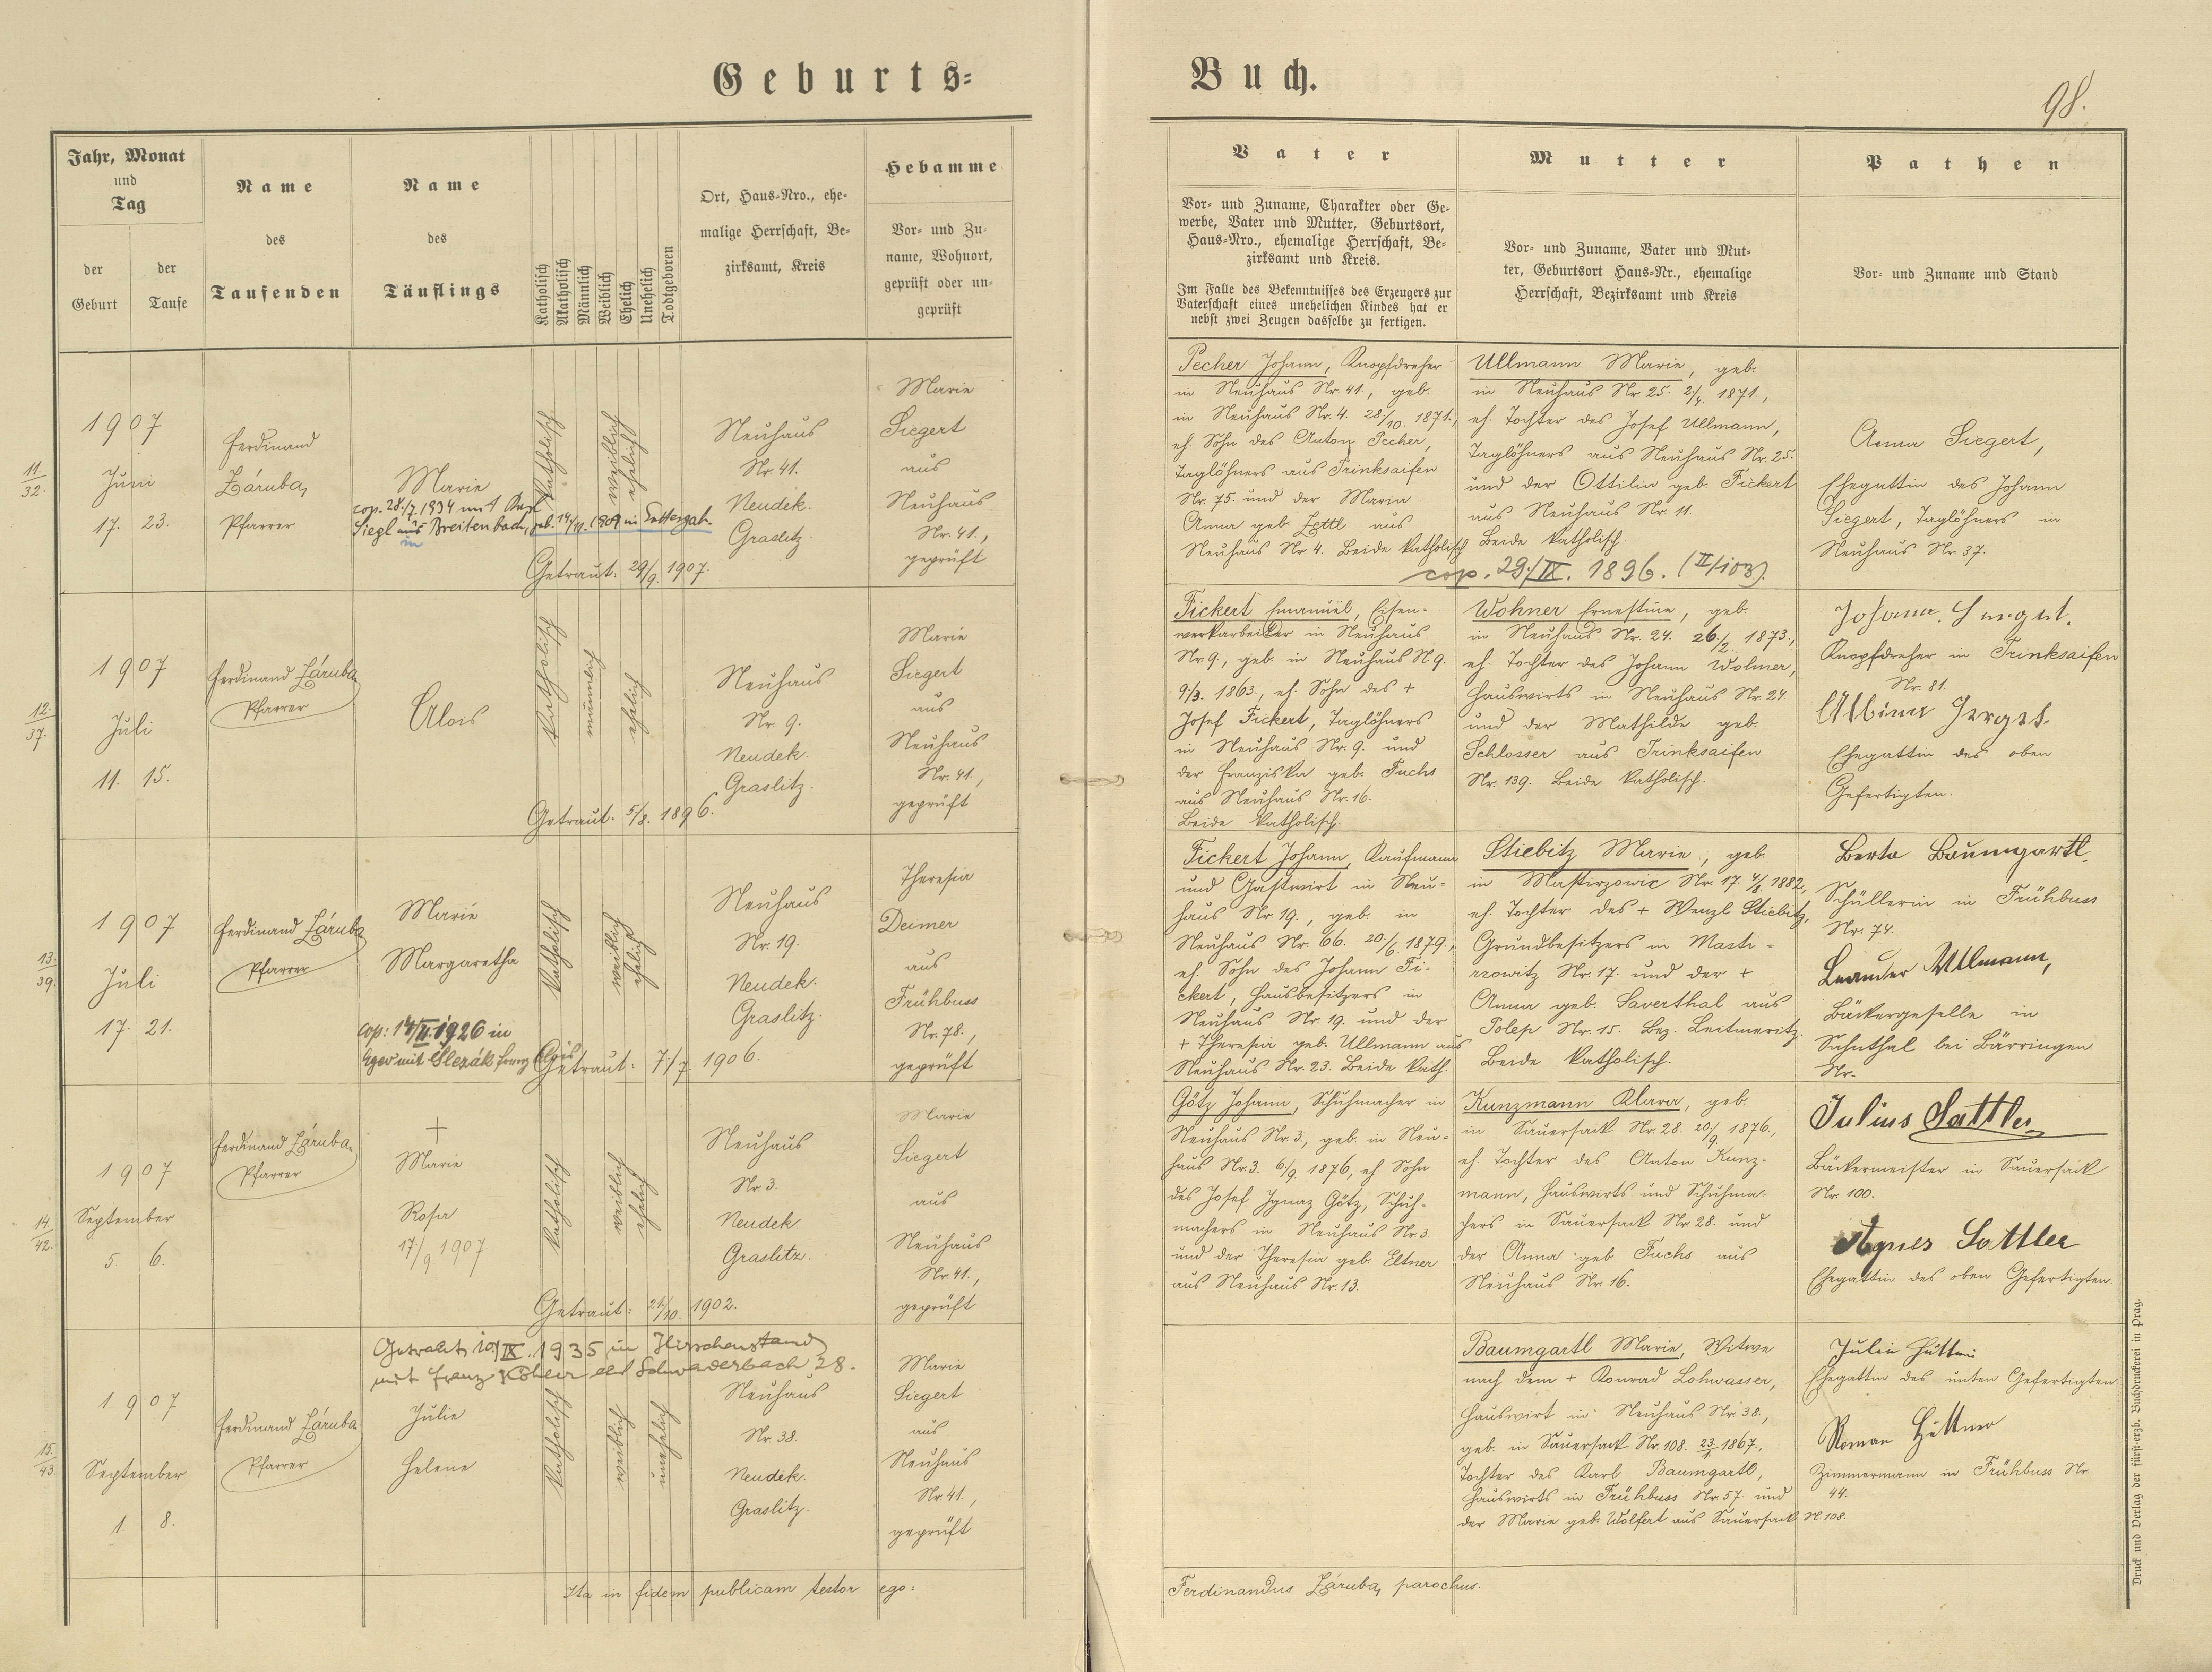 Geburts=
Buch.
98.
Jahr, Monat
und
Tag
der
Geburt
der
Taufe
Name
des
Taufenden
Name
des
Täuflings
Katholisch
Akatholisch
Männlich
Weiblich
Ehelich
Unehelich
Todtgeboren
Ort, Haus-Nro., ehe-
malige Herrschaft, Be-
zirksamt, Kreis
Hebamme
Vor- und Zu-
name, Wohnort,
geprüft oder un-
geprüft
Vater
Vor- und Zuname, Charakter oder Ge-
werbe, Vater und Mutter, Geburtsort,
Haus-Nro., ehemalige Herrschaft, Be-
zirksamt und Kreis.
Im Falle des Bekenntnisses des Erzeugers zur
Vaterschaft eines unehelichen Kindes hat er
nebst zwei Zeugen dasselbe zu fertigen.
Mutter
Vor- und Zuname, Vater und Mut-
ter, Geburtsort Haus-Nr., ehemalige
Herrschaft, Bezirksamt und Kreis
Pathen
Vor- und Zuname und Stand
11.
32.
1907
Juni
17. 23.
Ferdinand
Záruba,
Pfarrer
Marie
cop. 28./7. 1934 mit
Siegl aus Breitenbach, geb. 14/11. 1909 in
in
katholisch
weiblich
ehelich
Getraut: 29/9. 1907.
Neuhaus
Nr. 41.
Neudek.
Graslitz.
Marie
Siegert
aus
Neuhaus
Nr. 41.,
geprüft
Pecher Johann, Knopfdreher
in Neuhaus Nr. 41., geb.
in Neuhaus Nr. 4. 28./10. 1871.,
eh. Sohn des Anton Pecher,
Taglöhners aus Trinksaifen
Nr. 75. und der Maria
Anna geb. Zettl aus
Neuhaus Nr. 4. Beide katholisch
Ullmann Marie, geb.
in Neuhaus Nr. 25. 2/4. 1871.,
eh. Tochter des Josef Ullmann,
Taglöhners aus Neuhaus Nr. 25.
und der Ottilia geb. Fickert
aus Neuhaus Nr. 11.
Beide katholisch.
cop. 29./IX. 1896. (II/103).
Anna Siegert,
Ehegattin des Johann
Siegert, Taglöhners in
Neuhaus Nr. 37.
12.
37.
1907
Juli
11. 15.
Ferdinand Záruba
Pfarrer
Alois
katholisch
männlich
ehelich
Getraut: 5/8. 1896.
Neuhaus
Nr. 9.
Neudek.
Graslitz.
Marie
Siegert
aus
Neuhaus
Nr. 41.,
geprüft
Fickert Emanuel, Eisen-
werkarbeiter in Neuhaus
Nr. 9., geb. in Neuhaus N. 9.
9/3. 1863., eh. Sohn des +
Josef Fickert, Taglöhners
in Neuhaus Nr. 9. und
der Franziska geb. Fuchs
aus Neuhaus Nr. 16.
Beide katholisch.
Wohner Ernestine, geb.
in Neuhaus Nr. 24. 26./2. 1873.,
eh. Tochter des Johann Wohner,
Hauswirts in Neuhaus Nr. 24.
und der Mathilde geb.
Schlosser aus Trinksaifen
Nr. 139. Beide katholisch.
Johann
Knopfdreher in Trinksaifen
Nr. 81.
Albina
Ehegattin des oben
Gefertigten.
13.
39.
1907
Juli
17. 21.
Ferdinand Záruba
Pfarrer
Marie
Margaretha
cop: 14/II. 1926 in
Eger mit Slezák Franz Alois
katholisch
weiblich
ehelich
Getraut: 7./7. 1906.
Neuhaus
Nr. 19.
Neudek.
Graslitz.
Theresia
Deimer
aus
Frühbuss
Nr. 78.,
geprüft
Fickert Johann, Kaufmann
und Gastwirt in Neu-
haus Nr. 19., geb. in
Neuhaus Nr. 66. 20./6. 1879.,
eh. Sohn des Johann Fi-
ckert, Hausbesitzers in
Neuhaus Nr. 19. und der
+ Theresia geb. Ullmann aus
Neuhaus Nr. 23. Beide kath.
Stiebitz Marie, geb.
in Mastirzowic Nr. 17. 4/8. 1882,
eh. Tochter des + Wenzl Stiebitz,
Grundbesitzers in Masti-
rzowitz Nr. 17. und der +
Anna geb. Saverthal aus
Polep Nr. 15. Bez. Leitmeritz.
Beide katholisch.
Berta Baumgartl
Schüllerin in Frühbuss
Nr. 74.
Leander Ullmann,
Bäckergeselle in
Sahnthal bei Bärringen
Nr.
14.
42.
1907
September
5 6.
Ferdinand Záruba
Pfarrer
+
Marie
Rosa
17./9 1907
katholisch
weiblich
ehelich
Getraut: 21./10. 1902.
Neuhaus
Nr. 3.
Neudek
Graslitz.
Marie
Siegert
aus
Neuhaus
Nr. 41.,
geprüft
Götz Johann, Schuhmacher in
Neuhaus Nr. 3., geb. in Neu-
haus Nr. 3. 6./9. 1876, eh. Sohn
des Josef Ignaz Götz, Schuh-
machers in Neuhaus Nr. 3.
und der Theresia geb. Eltner
aus Neuhaus Nr. 13.
Kunzmann Klara, geb.
in Sauersack Nr. 28. 20/9. 1876.,
eh. Tochter des Anton Kunz-
mann, Hauswirts und Schuhma-
chers in Sauersack Nr. 28. und
der Anna geb. Fuchs aus
Neuhaus Nr. 16.
Julius Sattler
Bäckermeister in Sauersack
Nr. 100.
Agnes Sattler
Ehegattin des oben Gefertigten.
15.
43.
1907
September
1. 8.
Ferdinand Záruba
Pfarrer
Getraut, 10/IX. 1935 in Hirschenstand
mit Franz Köhler aus Schwaderbach 28.
Julie
Helene
katholisch
weiblich
unehelich
Neuhaus
Nr. 38.
Neudek.
Graslitz.
Marie
Siegert
aus
Neuhaus
Nr. 41.,
geprüft
Baumgartl Marie, Witwe
nach dem + Konrad Lohwasser,
Hauswirt in Neuhaus Nr. 38.,
geb. in Sauersack Nr. 108. 1867.,
Tochter des Karl Baumgartl,
Hauswirts in Frühbuss Nr. 57. und
der Marie geb. Wolfert aus Sauersack N. 108.
Julie Hüttner
Ehegattin des unten Gefertigten
Roman Hüttner
Zimmermann in Frühbuss Nr.
44.
Ita in fidem publicam testor ego:
Ferdinandus Záruba, parochus.
Druck und Verlag der fürst-erzb. Buchdruckerei in Prag.